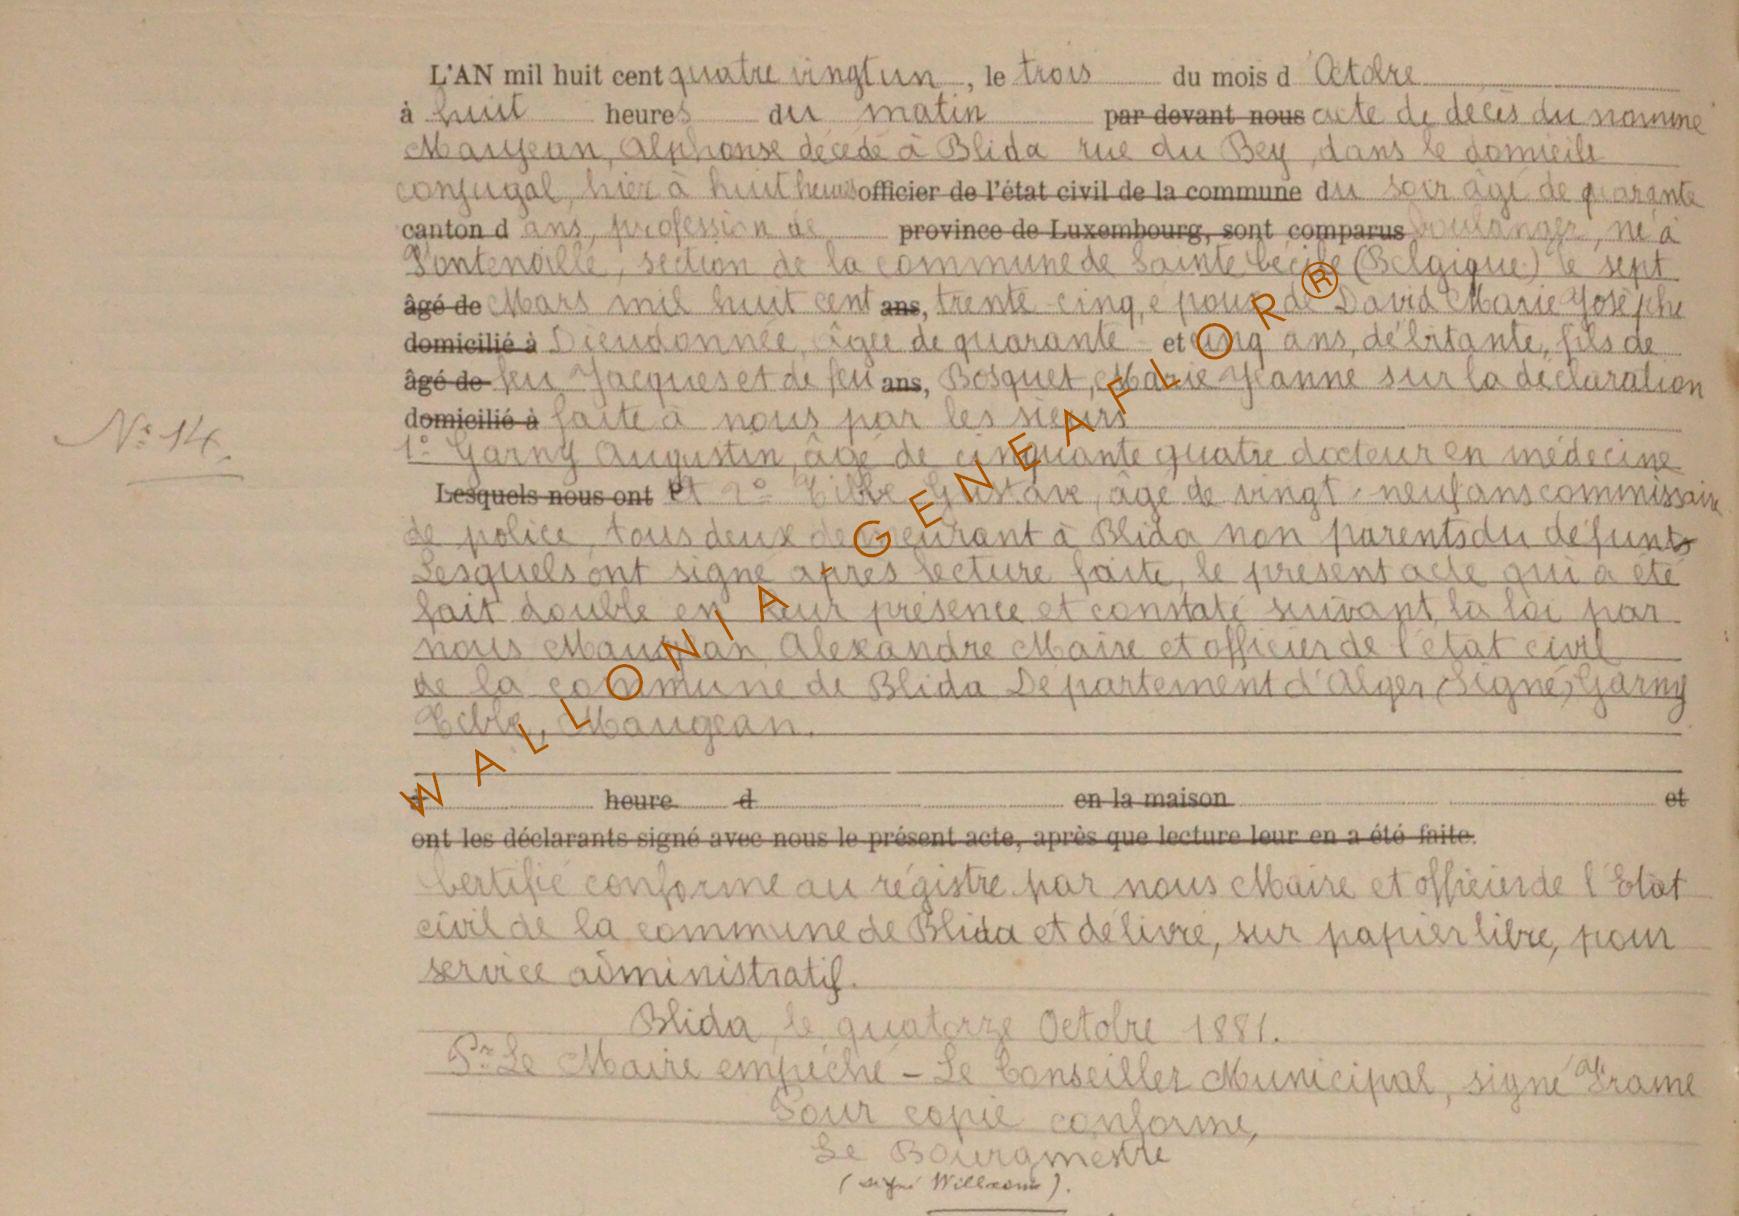 L'AN mil huit cent quatre vingt un , le trois du mois d'Octobre
à huit heures du matin par devant nous acte de décès du nommé
Maugean, Alphonse décédé à Blida rue du Bey, dans le domicile
conjugal, hier à huit heures officier de l'état civil de la commune du soir âgé de quarante
canton d ans, profession de province de Luxembourg, sont comparus boulanger, né à
Fontenoille, section de la commune de Sainte Cécile (Belgique) le sept
âgé de Mars mil huit cent ans, trente cinq, époux de David Marie Josèphe
domicilié à Dieudonnée, âgée de quarante et cinq ans, débitante, fils de
âgé de feu Jacques et de feu ans, Bosquet, Marie Jeanne sur la déclaration
domicilié à faite à nous par les sieurs
1° Garny Augustin, âgé de cinquante quatre docteur en médecine
Lesquels nous ont Et 2° Gustave, âgé de vingt-neuf ans commissaire
de police, tous deux demeurant à Blida non parents du défunt
Lesquels ont signé après lecture faite, le présent acte qui a été
fait double en leur présence et constaté suivant la loi par
nous Alexandre Maire et officier de l'état civil
de la commune de Blida Département d'Alger (Signé) Garny
Maugean.
à heure d en la maison et
ont les déclarants signé avec nous le présent acte, après que lecture leur en a été faite.
Certifié conforme au régistre par nous Maire et officier de l'Etat
civil de la commune de Blida et délivré, sur papier libre, pour
service administratif.
Blida, le quatorze Octobre 1881.
Pr Le Maire empêché - Le Conseiller Municipal, signé Frame
Pour copie conforme,
Le Bourgmestre
(signé Willaume).
N° 14.
WALLONIA-GENEAFLOR®